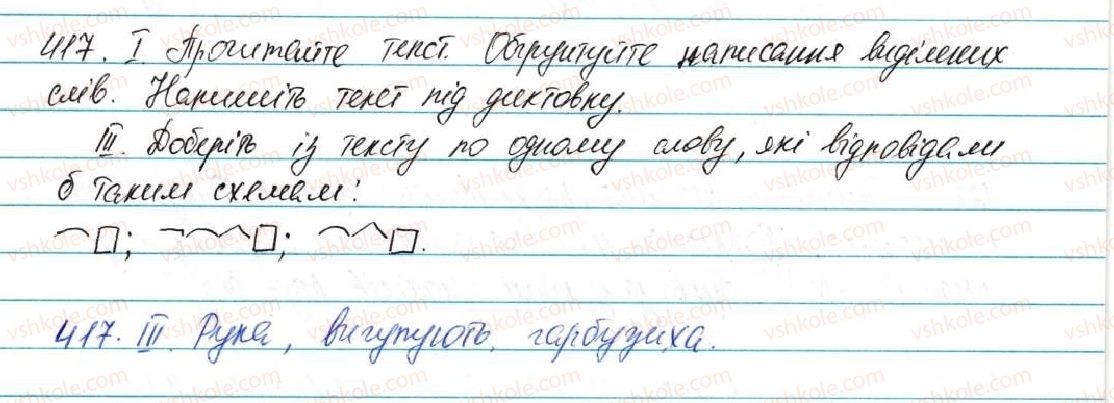 417. I Прочитайте текст. Обґрунтуйте написання виділених
слів. Напишіть текст під диктовку.
III. Доберіть із тексту по одному слову, які відповідали
б таким схемам:
417. III. Рука, вигупують, гарбузиха.